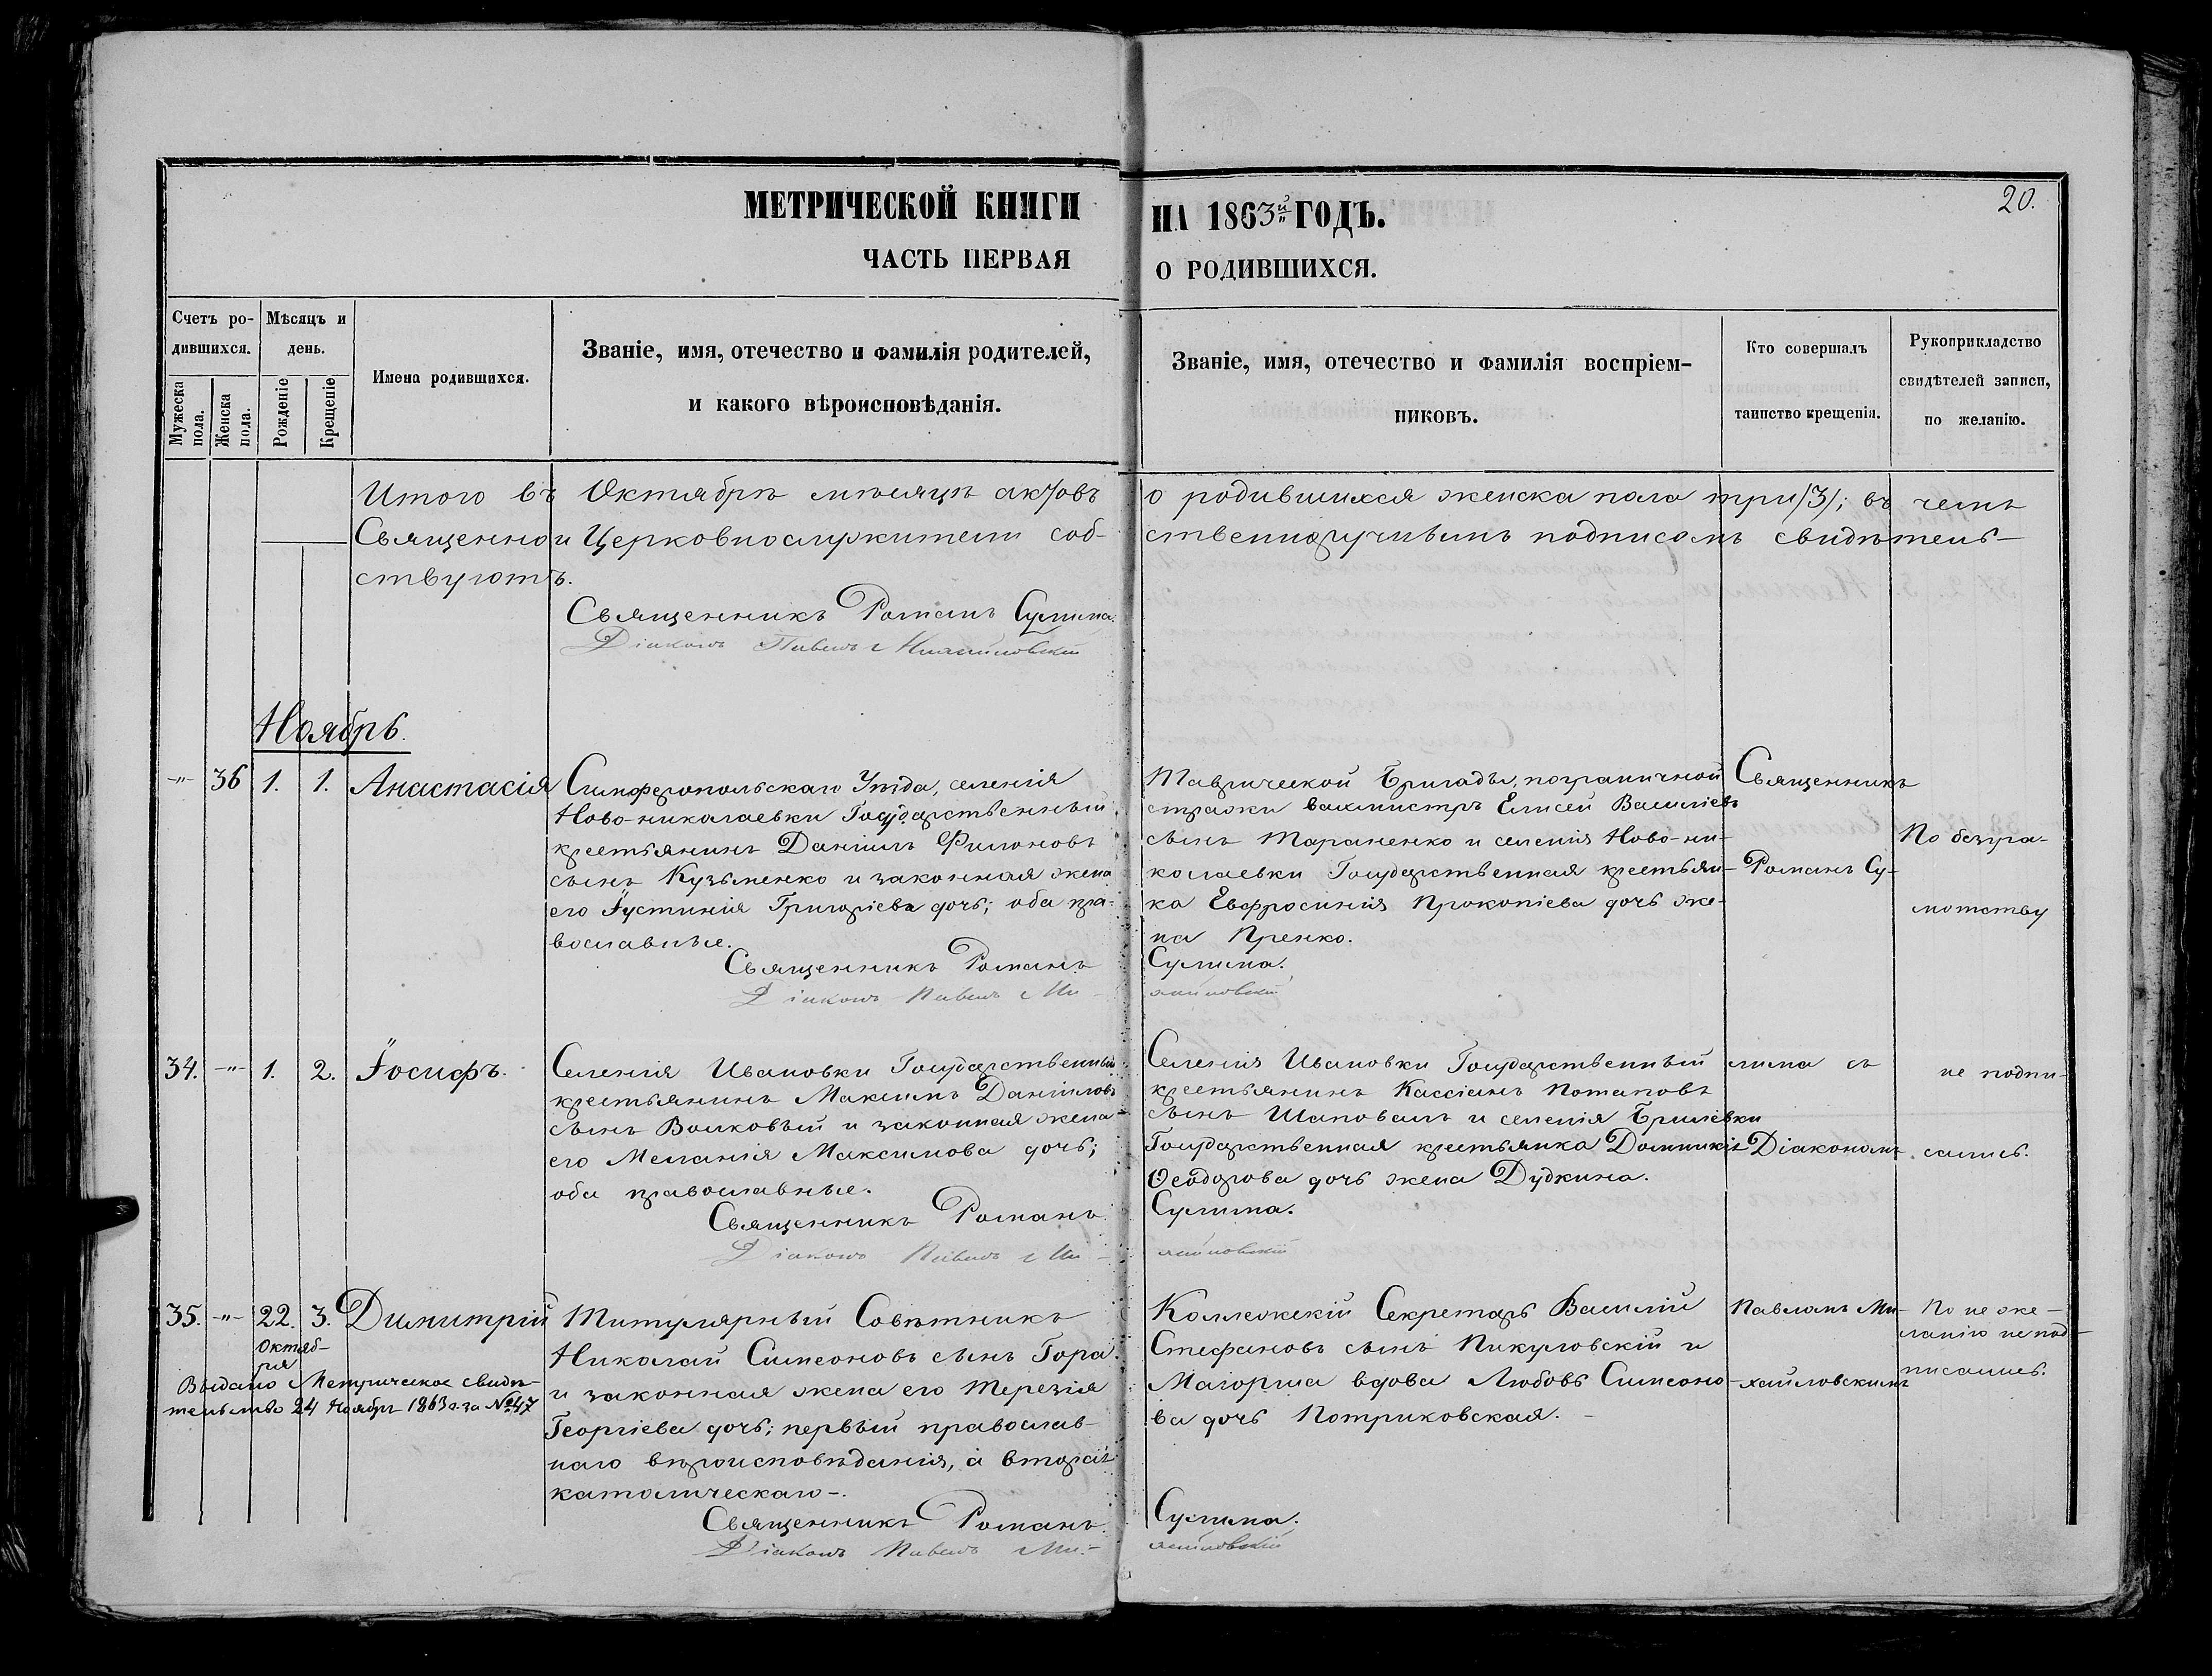 МЕТРИЧЕСКОЙ КНИГИ НА 1863й ГОДЪ.
20.
ЧАСТЬ ПЕРВАЯ О РОДИВШИХСЯ.
Счетъ ро-
дившихся.
Мужеска пола.
Женска пола.
Мѣсяцъ и
день.
Рожденіе
Крещеніе
Имена родившихся.
Званіе, имя, отечество и фамилія родителей,
и какого вѣроисповѣданія.
Званіе, имя, отечество и фамилія воспріем-
никовъ.
Кто совершалъ
таинство крещенія.
Рукоприкладство
свидѣтелей записи,
по желанію.
Итого въ Октябрѣ мѣсяцѣ актовъ о родившихся женска пола три /3/; въ чемъ
Священно и Церковнослужители соб- ственноручнымъ подписомъ свидѣтель-
ствуютъ.
Священникъ Романъ Сулима.
Діаконъ Павелъ Михайловскій
Ноябрь.
-"- 36 1. 1. Анастасія
Симферопольскаго Уѣзда, селенія
Ново-николаевки Государственный
крестьянинъ Даніилъ Филоновъ
сынъ Кузьменко и законная жена
его Іустинія Григоріева дочь; оба пра-
вославные.
Таврической Бригады, пограничной
стражи вахмистръ Елисей Василіевъ
сынъ Тараненко и селенія Ново-ни-
колаевки Государственная крестьян-
ка Евфросинія Прокопіева дочь же-
на Пренко.
Священникъ Романъ Сулима.
Діаконъ Павелъ Ми- хайловскій
34. -"- 1. 2. Іосифъ.
Селенія Ивановки Государственный
крестьянинъ Максимъ Даніиловъ
сынъ Волковый и законная жена
его Меланія Максимова дочь;
оба православные.
Селенія Ивановки Государственный
крестьянинъ Кассіанъ Потаповъ
сынъ Шаповалъ и селенія Брилевки
Государственная крестьянка Домникія
Ѳеодорова дочь жена Дудкина.
Священникъ Романъ Сулима.
Діаконъ Павелъ Ми- хайловскій
35. -"- 22. 3. Димитрій
Октяб-
ря
Выдано Метрическое свидѣ-
тельство 24 Ноября 1863 г. за № 47
Титулярный Совѣтникъ
Николай Симеоновъ сынъ Гора
и законная жена его Терезія
Георгіева дочь; первый православ-
наго вѣроисповѣданія, а вторая
католическаго-.
Коллежскій Секретарь Василій
Стефановъ сынъ Пикуловскій и
Маіорша вдова Любовь Симеоно-
ва дочь Потриковская.
Священникъ Романъ Сулима.
Діаконъ Павелъ Ми- хайловскій
Священникъ
Романъ Су-
лима съ
Діакономъ
Павломъ Ми-
хайловскимъ
По безгра-
мотству
не подпи-
сались.
По не же-
ланію не под-
писались.